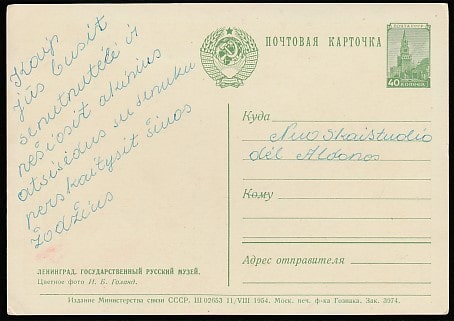 Kaip
jūs busit
senutnutelė ir
nešiosit akinius
atsisėdus su seniku
perskaitysit šiuos
žodžius
ПОЧТОВАЯ КАРТОЧКА
ПОЧТА СССР
40 КОПЕЕК
Куда
Nuo Skaistudio
dėl Aldonos
Кому
Адрес отправителя
ЛЕНИНГРАД. ГОСУДАРСТВЕННЫЙ РУССКИЙ МУЗЕЙ.
Цветное фото И. Б. Голанд.
Издание Министерства связи СССР. Ш.02653 11/VIII 1954. Моск. печ. ф-ка Гознака. Зак. 3974.